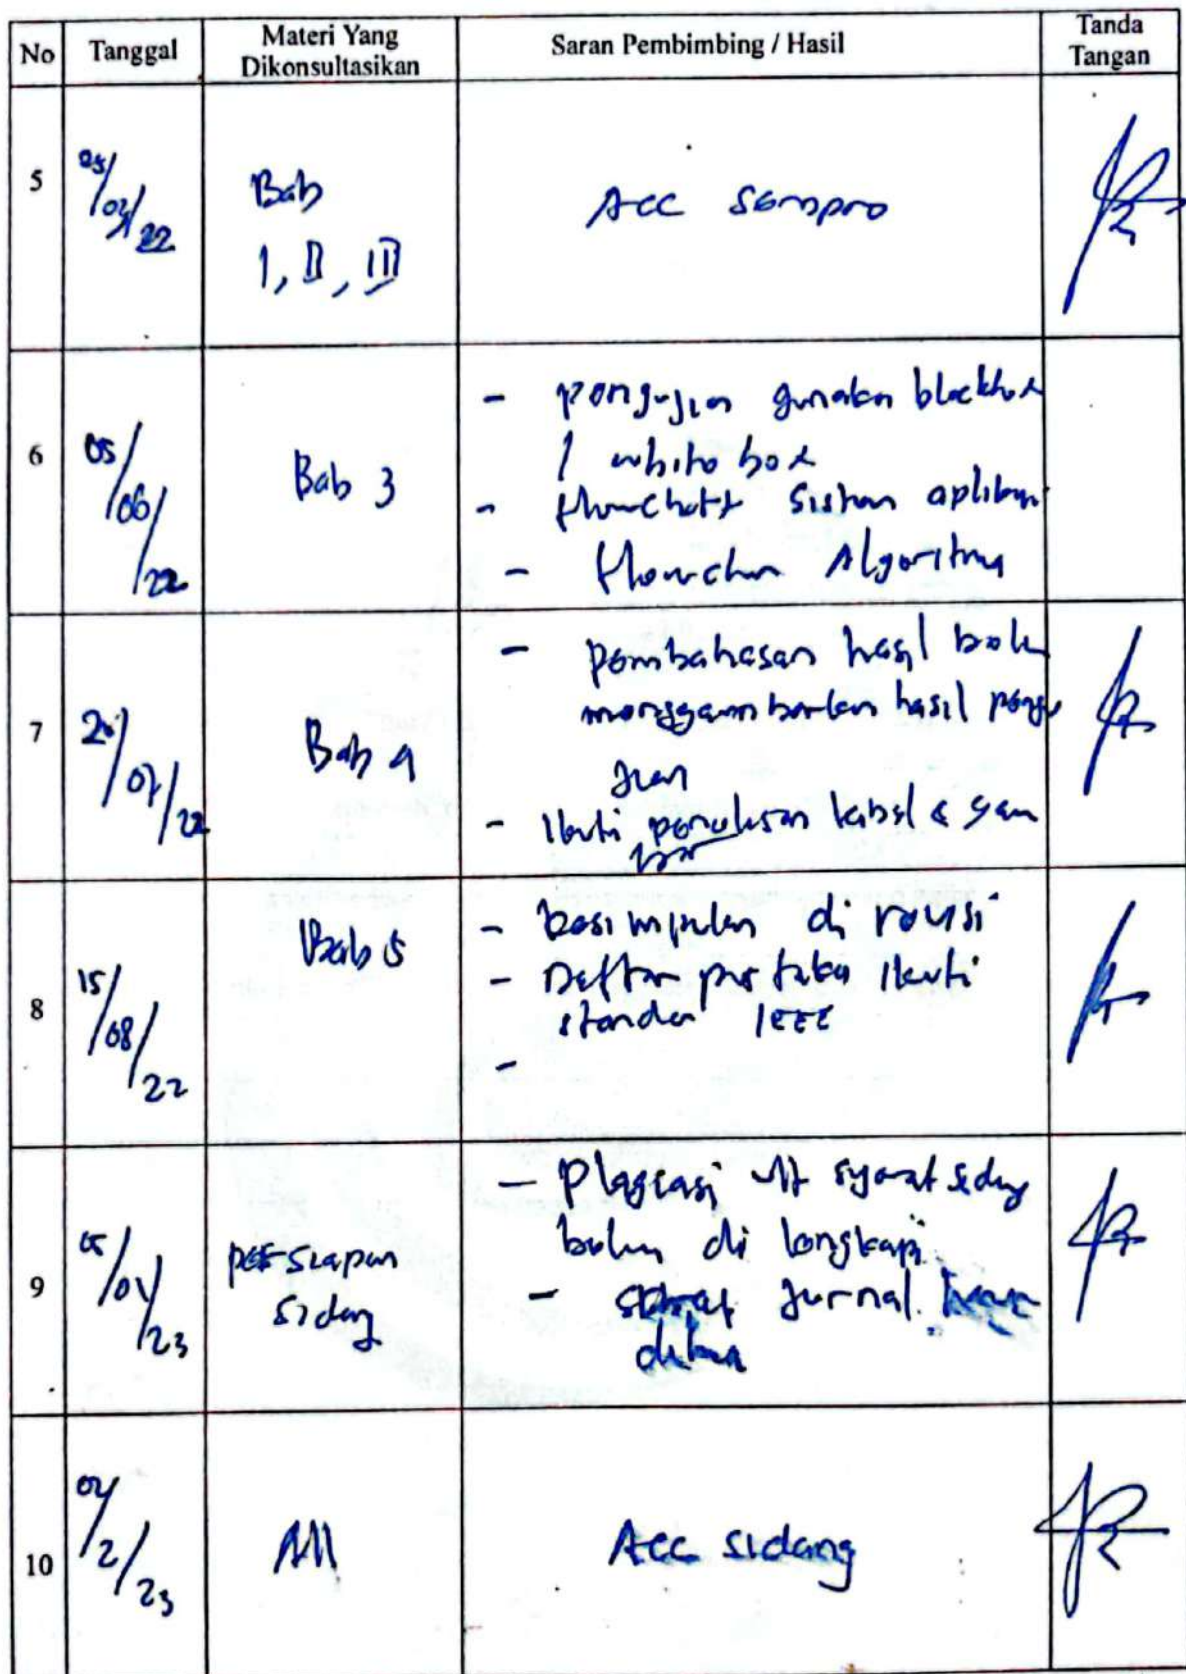 No Tanggal Materi Yang Dikonsultasikan Saran Pembimbing / Hasil Tanda Tangan
5 Bab Acc Sempro
I, II, III
6 05/06/22 Bab 3 - pengujian gunakan blackbox
/ white box
- flowchart sistem aplikasi
- flowchar Algoritma
7 Bab 4 - pembahasan hasil
menggambarkan hasil pengu
jian
- Ikuti penulisan tabel & gam
bar
8 15/08/22 Bab 5 - kesimpulan di revisi
- Daftar pustaka Ikuti
standar IEEE
-
9 05/01/23 persiapan - Plagiasi syarat sidang
sidang di lengkapi
- jurnal
10 02/2/23 All Acc sidang